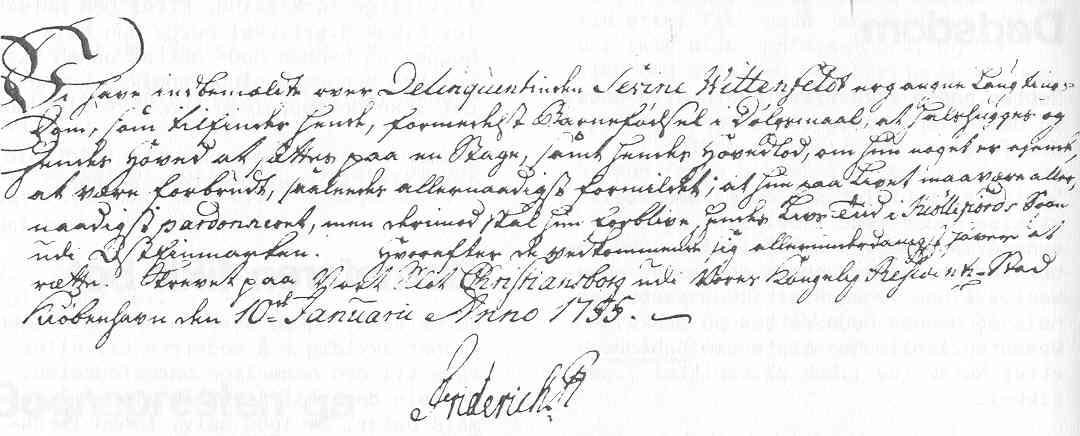 Vi have indbemældte over Delinqventinden Sirine Wittenfeldt ergangne Laugtings-
Dom, som tilfinder hende, formedelst Barnefødsel i Dølgsmaal, at halshugges og
hendes Hoved at sættes paa en Stage, samt hendes Hovedlod, om hun noget er ejende,
at være forbrudt, saaledes allernaadigst formildet, at hun paa Livet maa være aller-
naadigst pardonneret, men derimod skal hun forblive hendes Livs Tid i Kiøllefiords Sogn
udi Østfinmarken. Hvorefter de Vedkommende sig allerunderdanigst haver at
rætte. Skrevet paa Vort Slot Christiansborg udi Vores Kongelig Residentz-Stad
Kiøbenhavn den 10de Januarii Anno 1755.
Friderich R